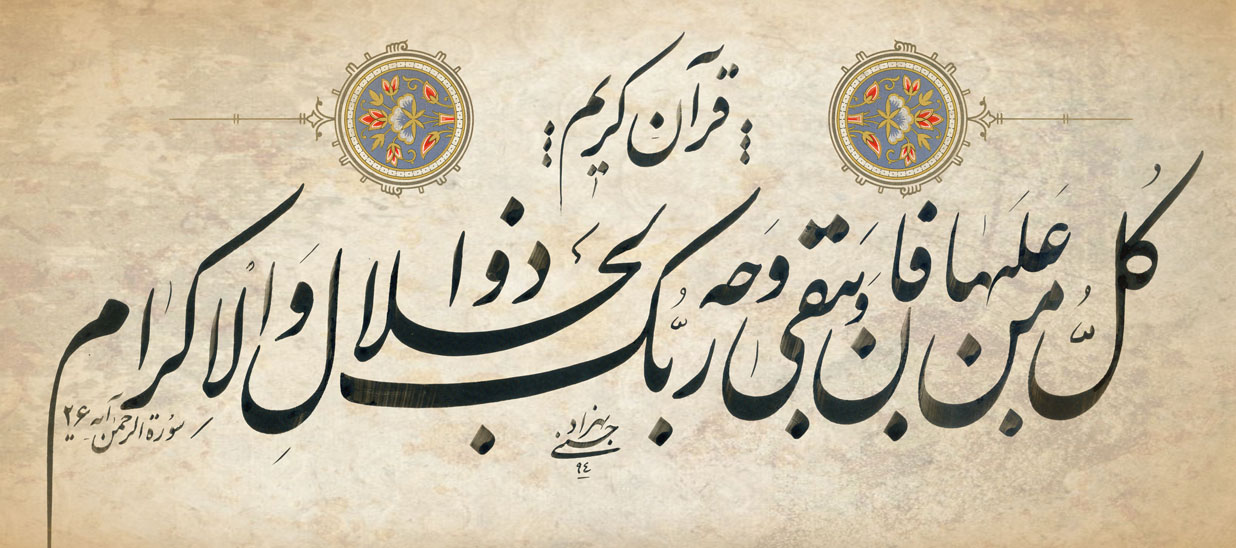 قرآن کریم
كُلُّ مَن عَلَیها فان وَیَبقی وَجهُ رَبُّکَ ذوالجَلال وَالاکرام
سورة الرحمن آیه ۲۶
بهزاد
۹٤